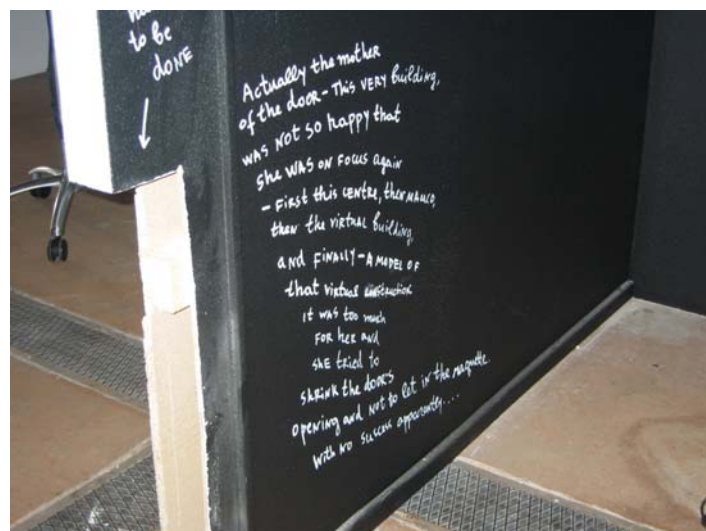 to be
DONE
Actually the mother
of the door - This very building,
was not so happy that
she was on focus again
- First this centre, then MAMCO,
then the virtual building,
and finally - A model of
that virtual construction
it was too much
for her and
she tried to
shrink the door's
opening and not to let in the maquette.
With no success apparently....